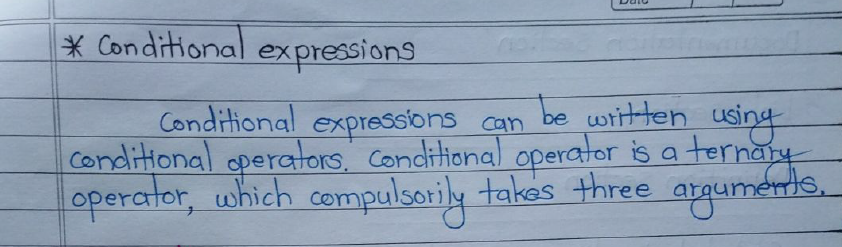 Date
* Conditional expressions
Conditional expressions can be written using
conditional operators. Conditional operator is a ternary
operator, which compulsorily takes three arguments.